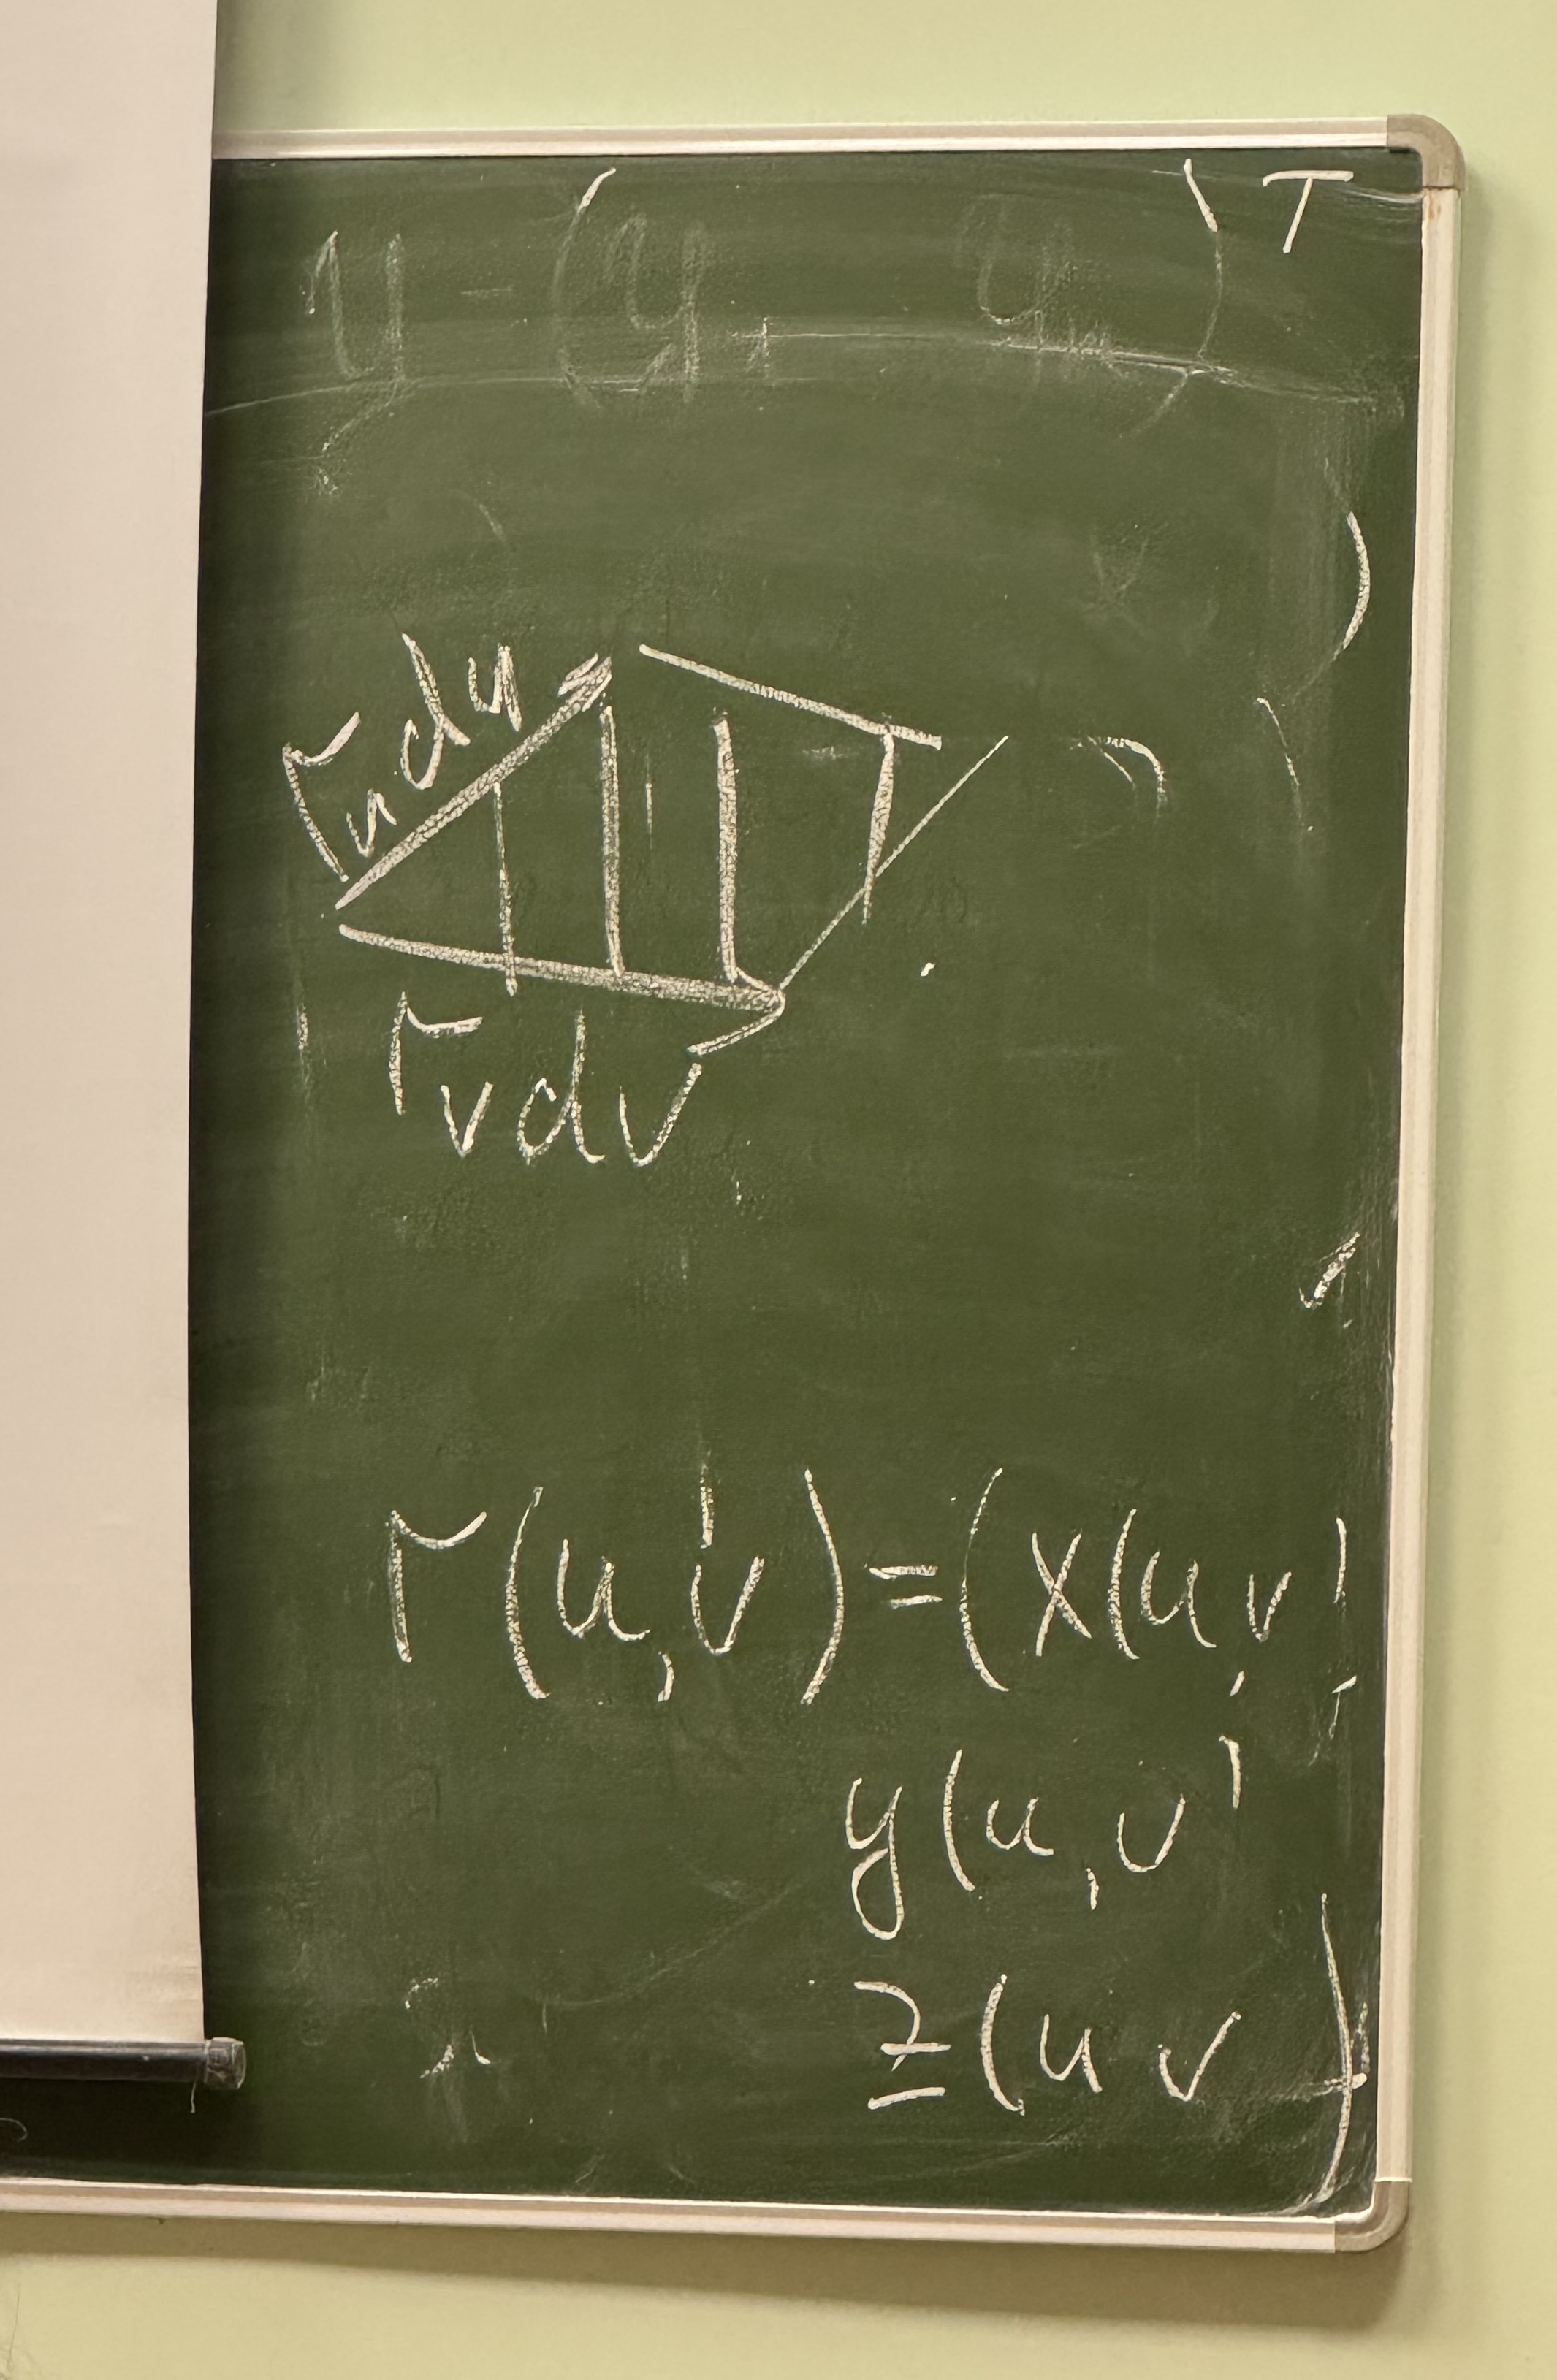 y = (y₁ yₘ)ᵀ
rᵤdu
rᵥdv
r(u,v)=(x(u,v),
y(u,v)
z(u v)